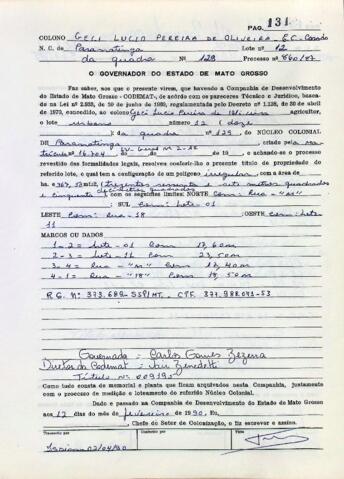 PAG. 131
COLONO Geci Lucio Pereira de Oliveira - E.C. Casado
N. C. de Paranatinga Lote nº 12
da quadra nº 129 Processo nº 860/87
O GOVERNADOR DO ESTADO DE MATO GROSSO
Faz saber, aos que o presente virem, que havendo a Companhia de Desenvolvimento
do Estado de Mato Grosso - CODEMAT, de acôrdo com os pareceres Técnico e Jurídico, basea-
do na Lei nº
de 1973, concedido, ao colono Geci Lucio Pereira de Oliveira agricultor,
o lote urbano número 12 (doze
) da quadra nº 129, DO NÚCLEO COLONIAL
DE Paranatinga criado pela ma-
trícula nº 16.704 de 19 , e achando-se o processo
revestido das formalidades legais, resolveu conferir-lhe o presente título de propriedade do
referido lote, o qual tem a configuração de um polígono irregular com a área de
ha e 367,50 mts2, (trezentos sessenta e sete metros quadrados
e cinquenta decímetros quadrados com os seguintes limites: NORTE Com: Rua -
; SUL Com: Lote - 01
LESTE Com: Rua - 18 ; OESTE Com: Lote-
11
MARCOS OU DADOS
1 - 2 = Lote - 01 Com 17,60m
2 - 3 = Lote - 11 Com 23,50m
3 - 4 = Rua - Com 17,40m
4 - 1 = Rua - "18" Com 18,50m
R.G. Nº 373.689-SSP/MT. CPF. 377.988.041-53
Governador - Carlos Gomes Bezerra
Diretor da Codemat - Jair Benedetti
Título Nº 00919
Tudo como consta de memorial e planta que ficam arquivados nesta Companhia, juntamente
com o processo de medição e loteamento do referido Núcleo Colonial.
Dado e passado na Companhia de Desenvolvimento do Estado de Mato Grosso
aos 12 dias do mês de fevereiro de 1990, Eu,
Chefe do Setor de Colonização, o fiz escrever e assino.
Transcrito em Visto
02/04/90